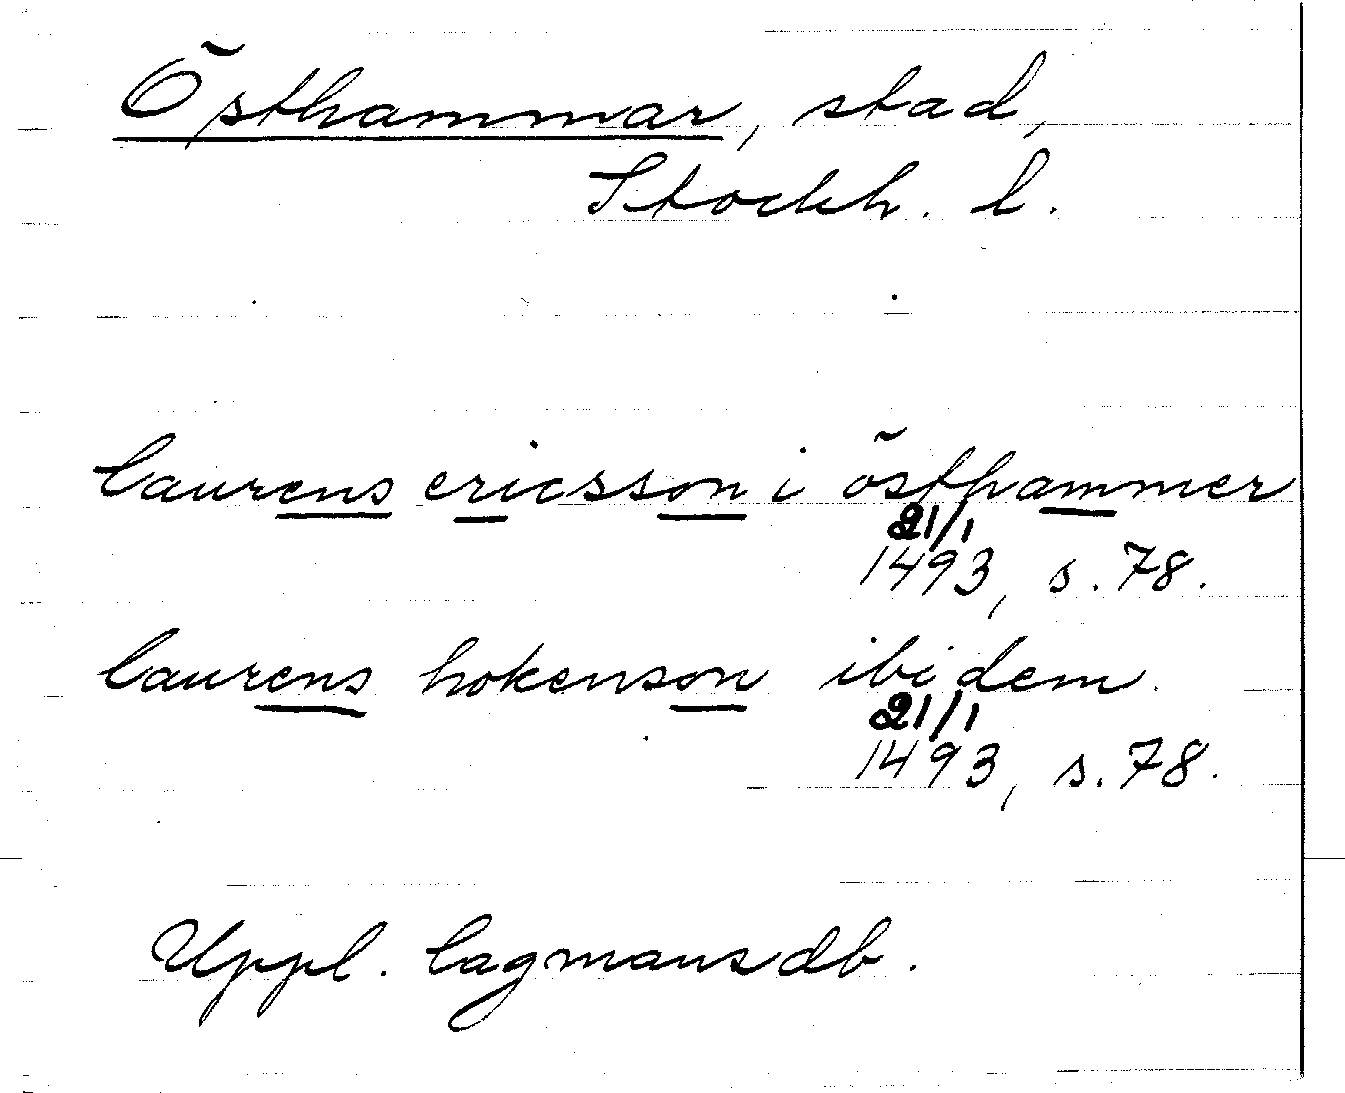 Östhammar, stad,
Stockh. l.
laurens ericsson i östhammer
21/1
1493, s. 78.
laurens hokenson ibidem
21/1
1493, s. 78.
Uppl. lagmansdb.